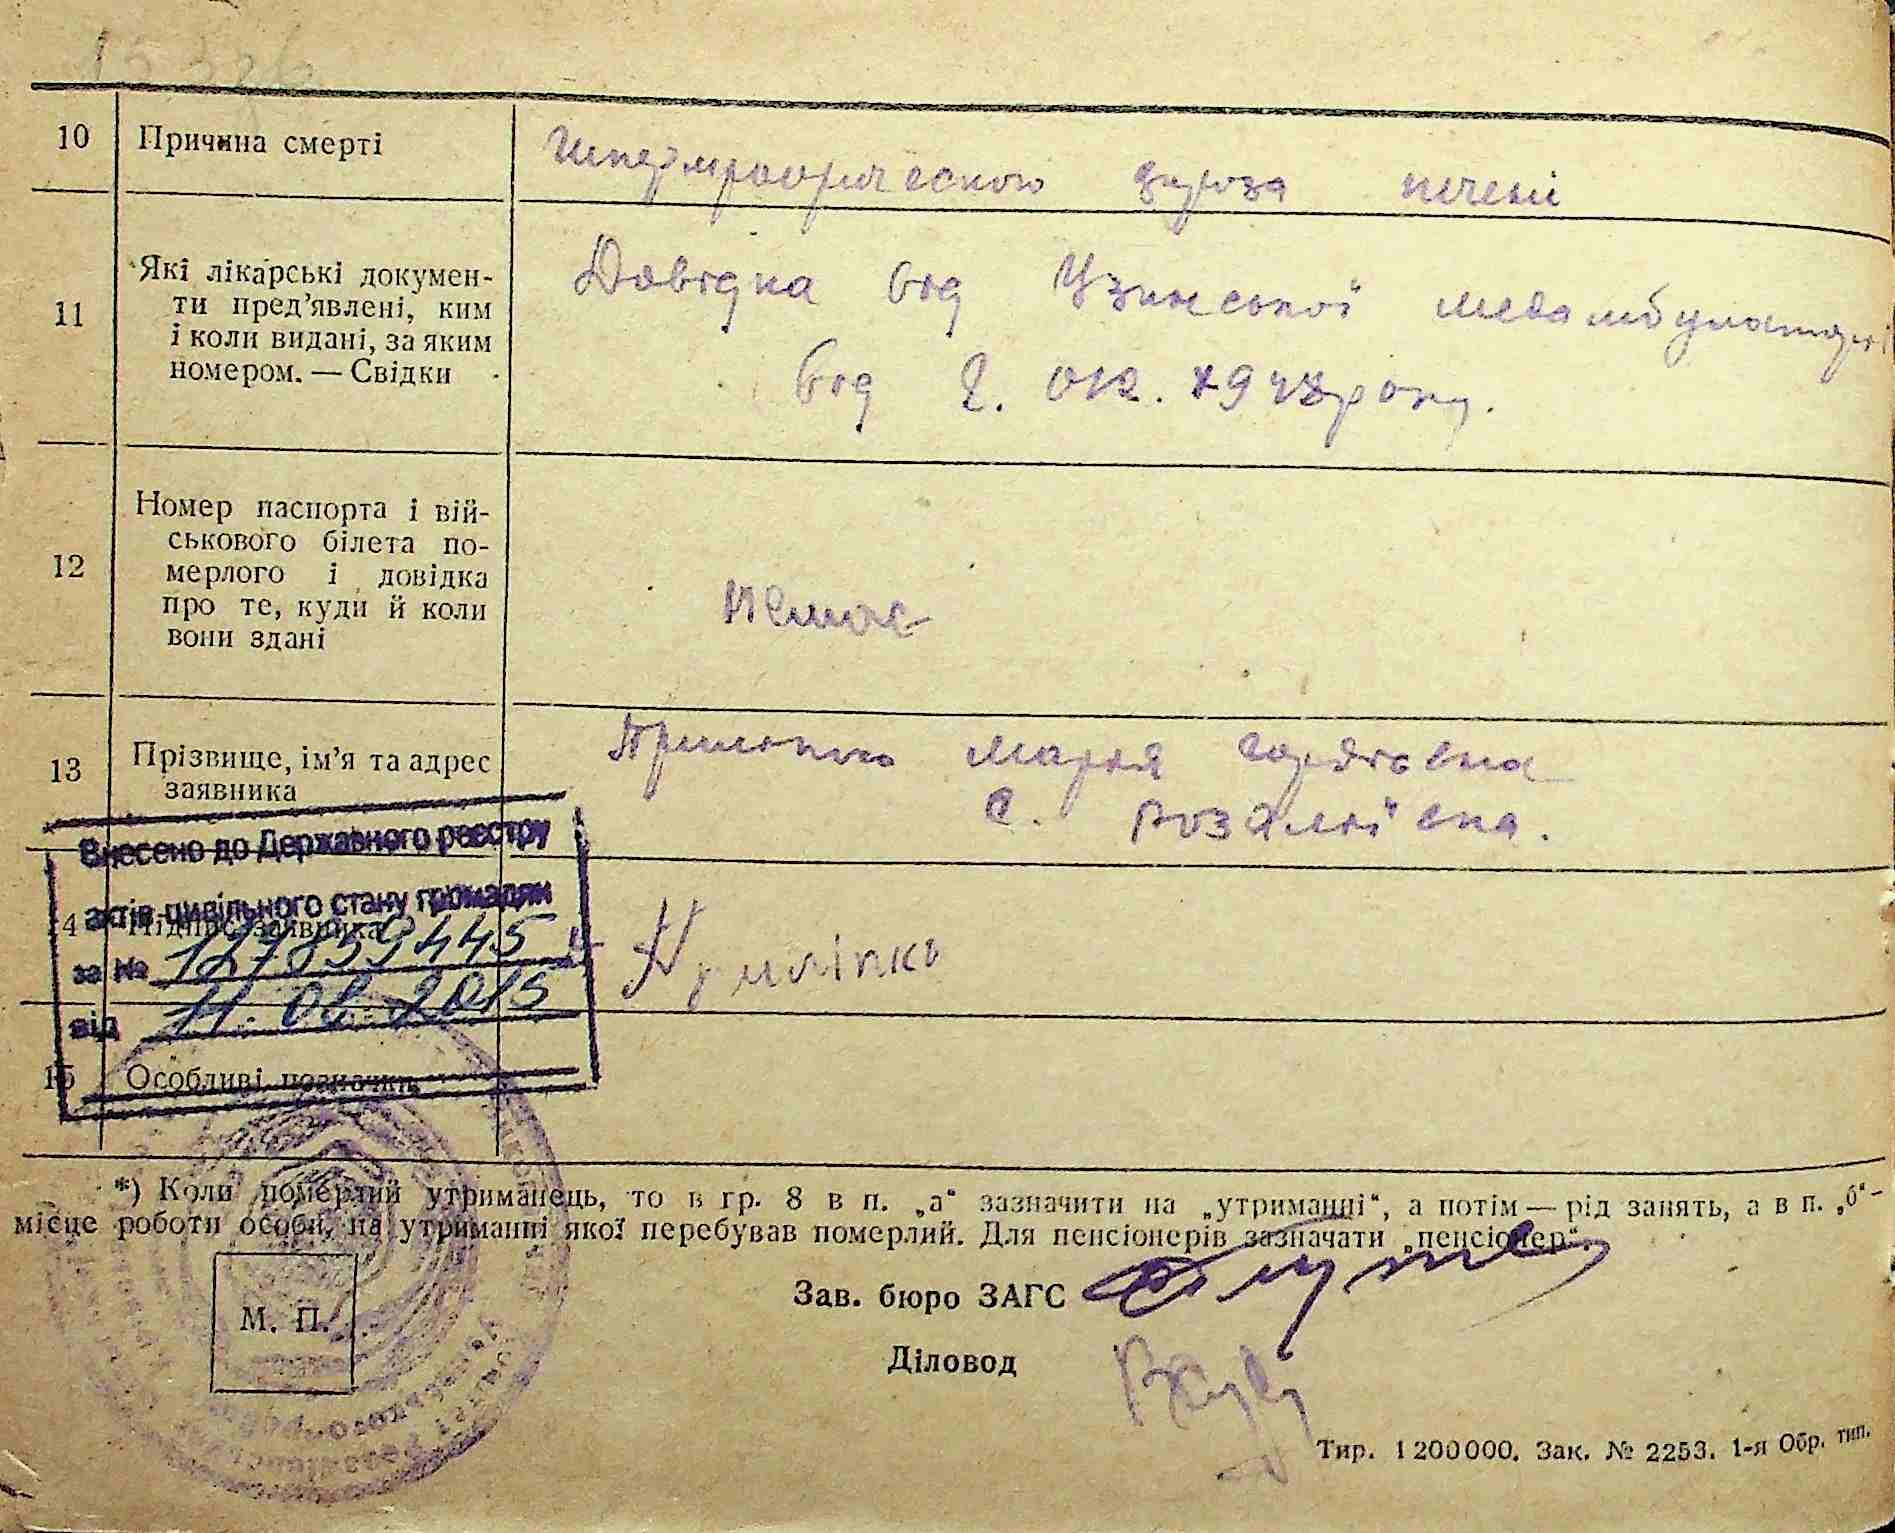 10 Причина смерті
печені
11 Які лікарські докумен-
ти пред’явлені, ким
і коли видані, за яким
номером. — Свідки
Довідка від Узинської медамбулаторії
від 2. окт. року.
12 Номер паспорта і вій-
ськового білета по-
мерлого і довідка
про те, куди й коли
вони здані
немає
13 Прізвище, ім’я та адрес
заявника
Марія
с. Розаліївка.
Внесено до Державного реєстру
актів цивільного стану громадян
14 Підпис заявника
за №
від 2015
15 Особливі позначки
*) Коли померлий утриманець, то в гр. 8 в п. „а“ зазначити на „утриманні“, а потім — рід занять, а в п. „б“ –
місце роботи особи, на утриманні якої перебував померлий. Для пенсіонерів зазначати „пенсіонер“.
Зав. бюро ЗАГС
М. П.
Діловод
Тир. 1 200 000. Зак. № 2253. 1-я Обр. тип.